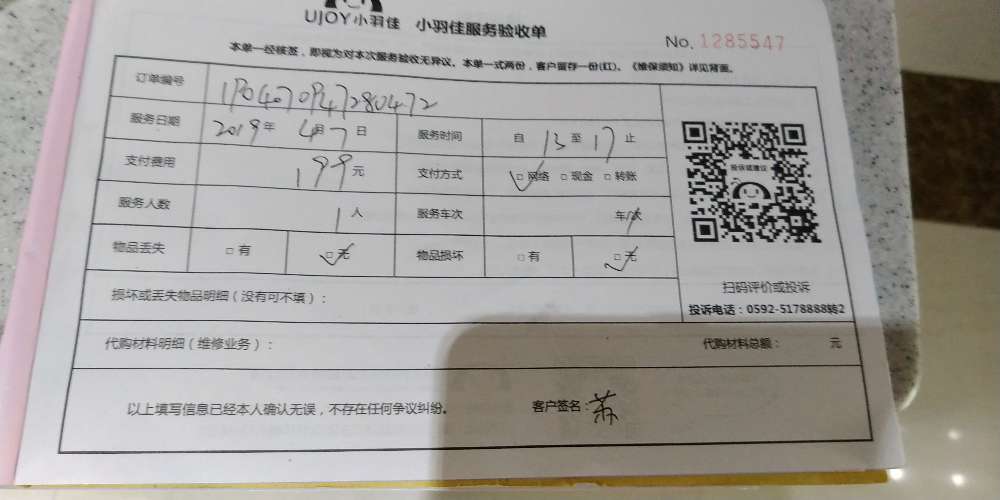 UJOY小羽佳 小羽佳服务验收单
No. 1285547
本单一经核签，即视为对本次服务验收无异议。本单一式两份，客户留存一份(红)。《维保须知》详见背面。
订单编号
服务日期 2019年 4月7日 服务时间 自 13 至 17 止
支付费用 199元 支付方式 □网络 □现金 □转账
服务人数 1人 服务车次 车/次
物品丢失 □有 □无 物品损坏 □有 □无
投诉或建议
扫码评价或投诉
投诉电话：0592-5178888转2
损坏或丢失物品明细（没有可不填）：
代购材料明细（维修业务）： 代购材料总额： 元
以上填写信息已经本人确认无误，不存在任何争议纠纷。 客户签名：苏